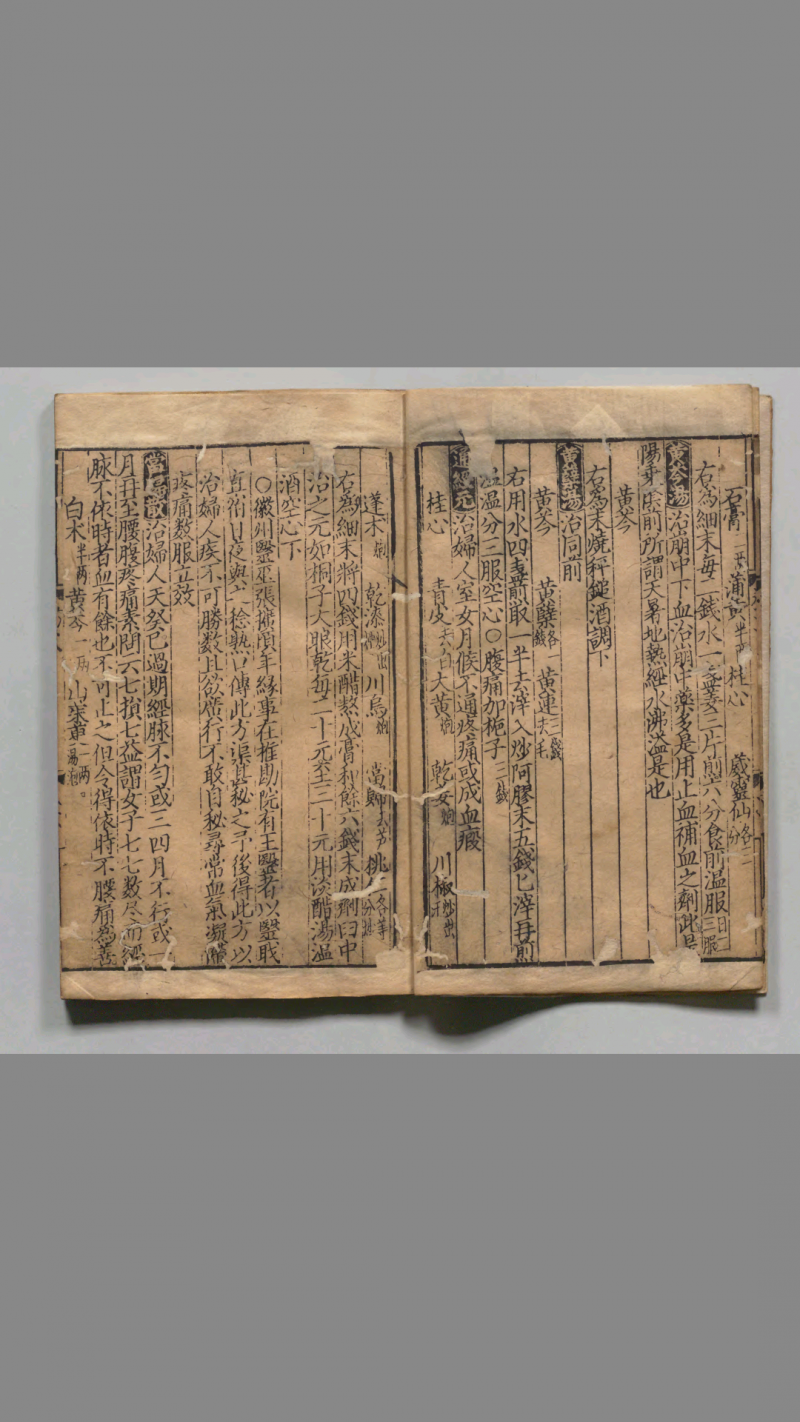 石膏一两 蒲黄半两 桂心 葳靈仙各二分
右為細末每二錢水一盞姜三片煎六分食前温服日二三服
黄芩湯治崩中下血治崩中藥多是用止血補血之劑此是
陽乘陰前所謂天暑地熱經水沸溢是也
黄芩
右為末燒秤錘酒調下
黄蘗湯治同前
黄芩 黄蘗各一錢 黄連三錢去毛
右用水四盞煎取一半去滓入炒阿膠末五錢匕滓再煎
温分三服空心○腹痛加梔子三錢
通經元治婦人室女月候不通疼痛或成血瘕
桂心 青皮去白 大黄炮 乾姜炮 川椒炒出汗
蓬术 乾漆炒出 川烏炮 當歸去芦 桃仁各等分
右為細末將四錢用米醋熬成膏和餘六錢末成劑臼中
治之元如桐子大眼乾每二十元至三十元用淡醋湯温
酒空心下
○徽州醫巫張擴頃年緣事在推勘院有王醫者以醫職
直宿日夜與之稔熟口傳此方渠甚秘之予後得此方以
治婦人疾不可勝數且欲廣行不敢自秘尋常血氣凝滯
疼痛數服立效
當歸散治婦人天癸已過期經脉不匀或三四月不行或一
月再至腰腹疼痛素問云七損七益謂女子七七數尽而經
脉不依時者血有餘也不可止之但令得依時不腰痛為善
白术半两 黄芩一两 山茱萸一两湯泡